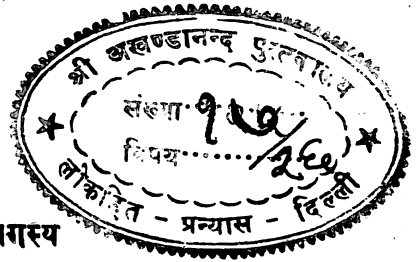 श्री अखण्डानन्द पुस्तकालय
संख्या
विषय
लोकहित - प्रन्यास - दिल्ली
गस्य